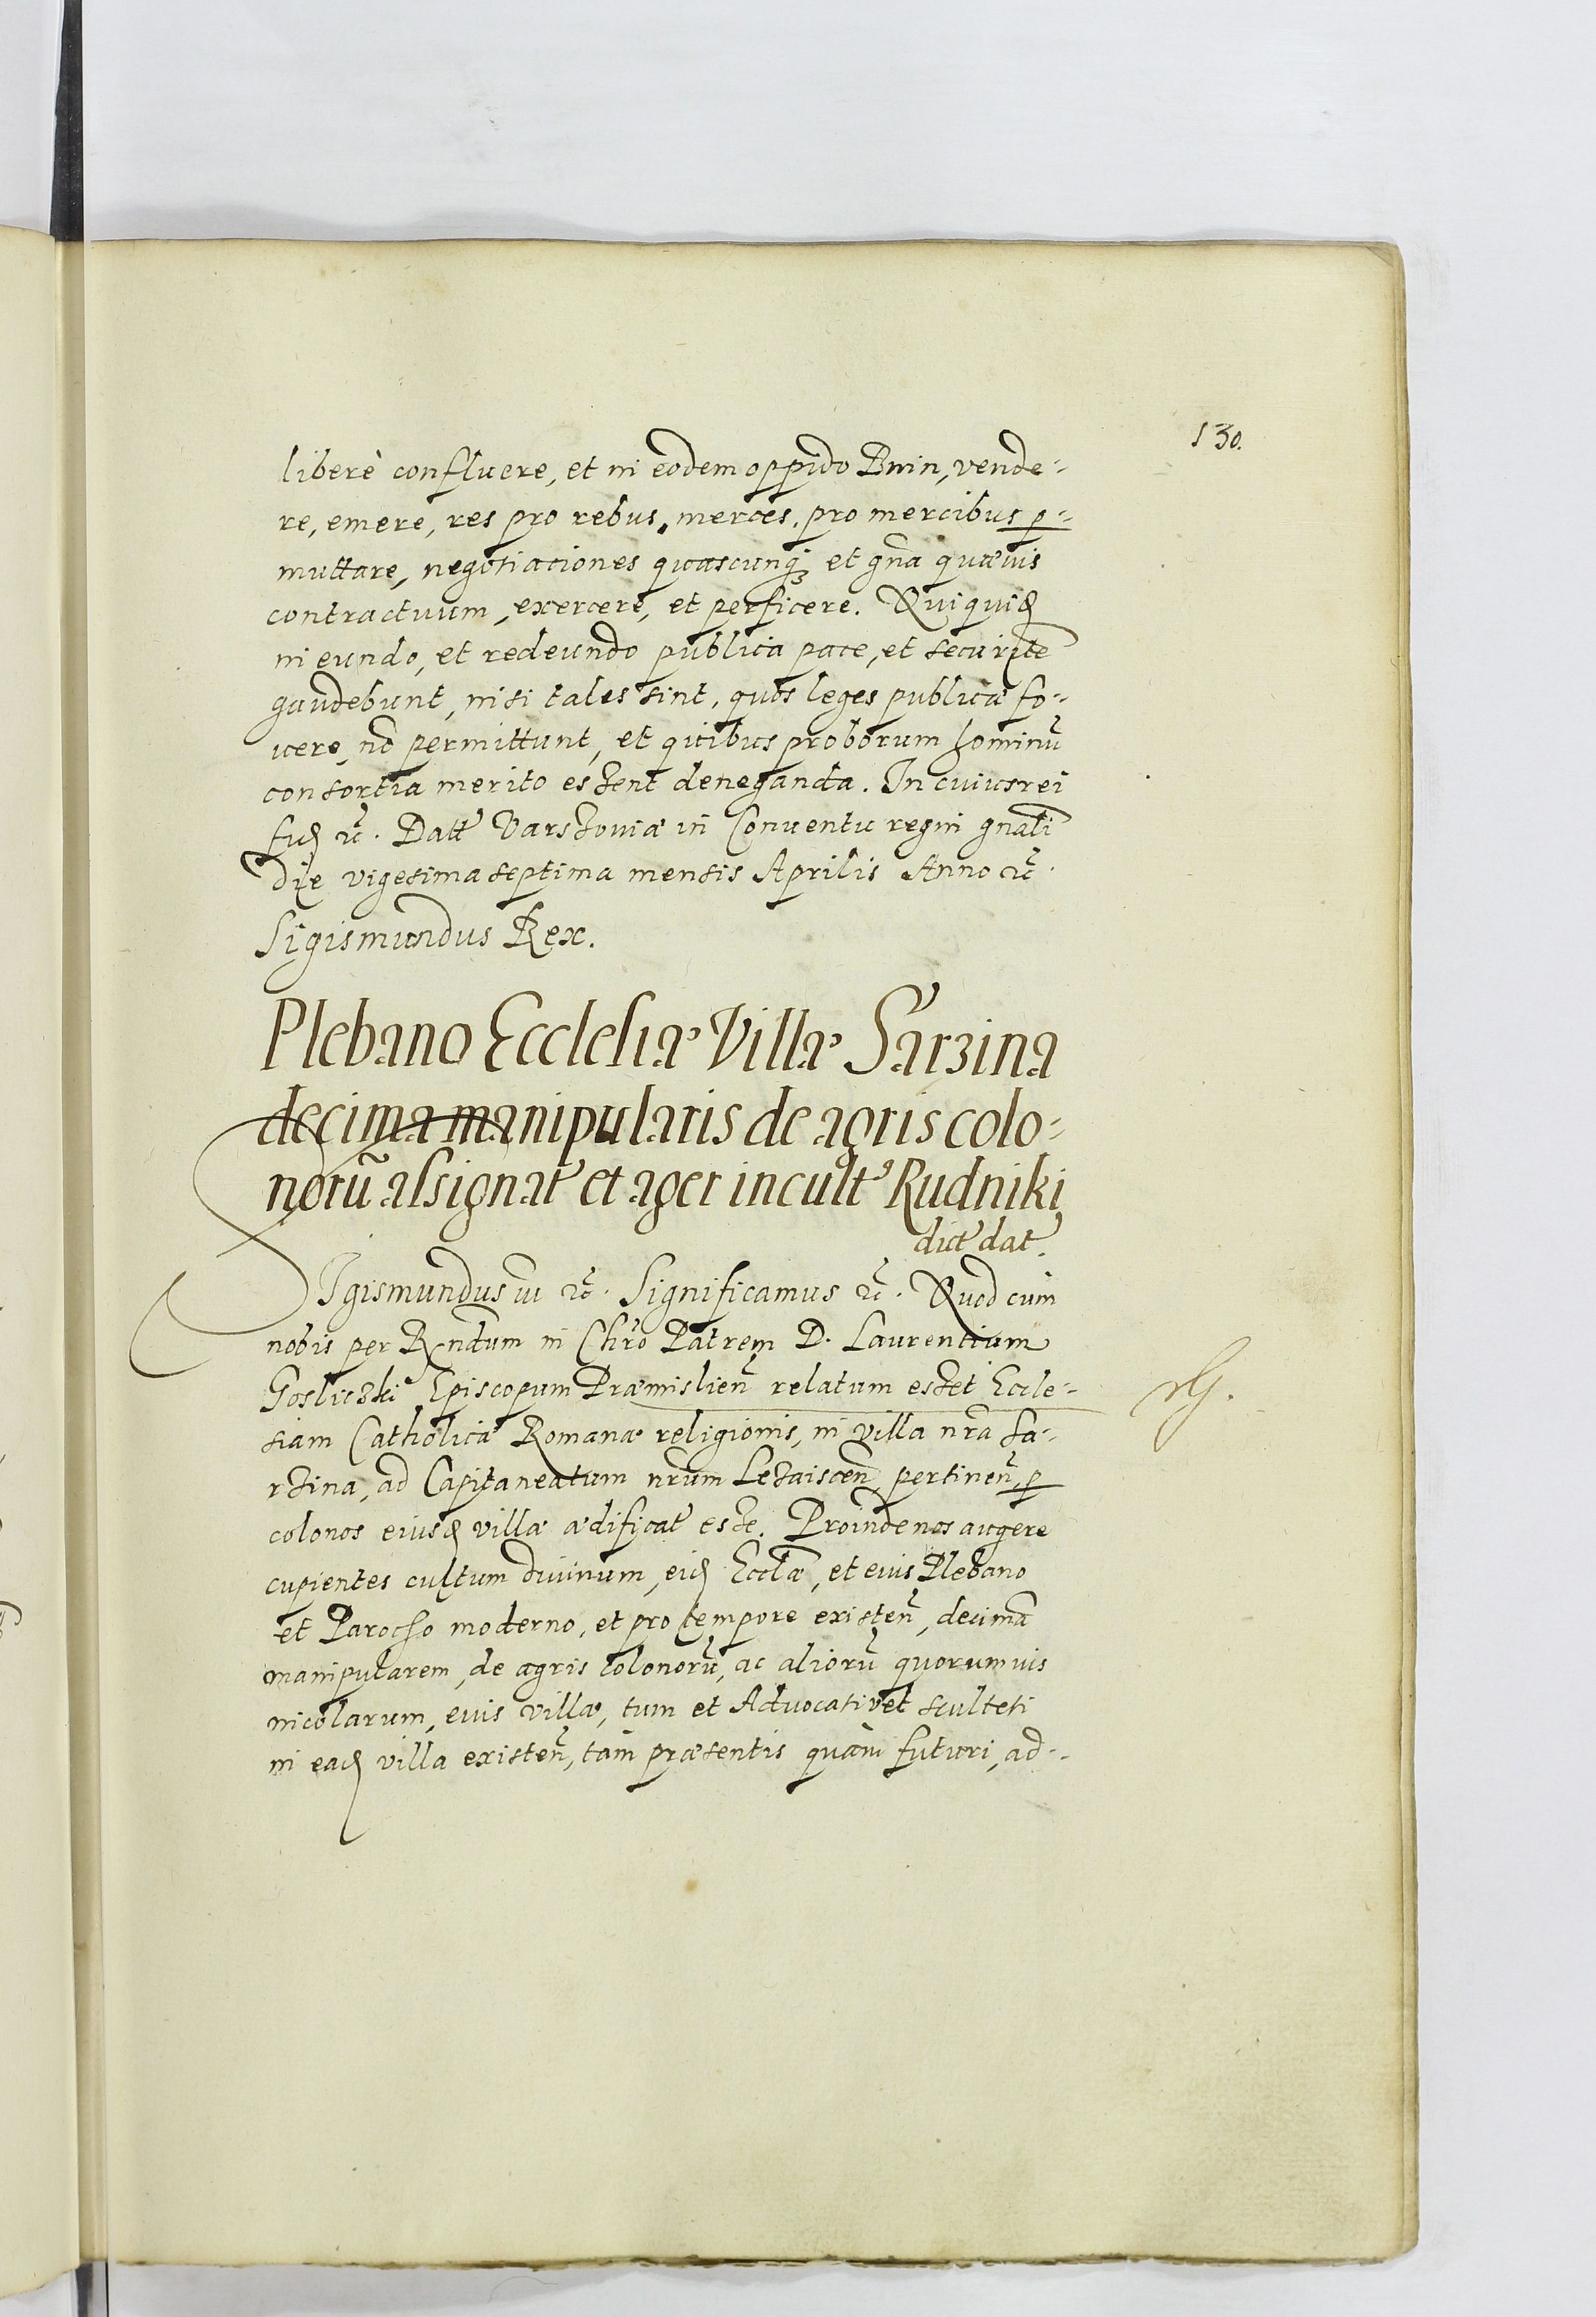 130.
liberè confluere, et in eodem oppido Bnin, vende-
re, emere, res pro rebus, merces, pro mercibus p-
muttare, negotiationes quascunq₃ et gña quævis
contractuum, exercere, et perficere. Qui quid
in eundo, et redeundo publica pace, et securitẽ
gaudebunt, nisi tales sint, quos leges publicæ fo-
vere, nõ permittunt, et quibus proborum hominũ
consortia merito essent deneganda. In cuius rei
fid ꝛc̃. Datt Varssoviæ in Conventu regni gnãli
die vigesima septima mensis Aprilis Anno ꝛc̃.
Sigismundus Rex.
Plebano Ecclesiæ Villæ Sarzina
decima manipularis de agris colo-
norũ assignat et ager incult⁹ Rudniki
dict dat.
SIgismundus iii ꝛc̃. Significamus ꝛc̃. Quod cùm
nobis per Rndum in Chro Patrem D. Laurentium
Gosliczki Episcopum Præmislieñ relatum esset Eccle-
rG.
siam Catholicæ Romanæ religionis, in villa nra Sa-
rzina, ad Capitaneatum nrum Lezaiscen pertineñ, p
colonos eiusd villæ ædificat esse. Proinde nos augere
cupientes cultum divinum, eid Eccłæ, et eius Plebano
et Parocho moderno, et pro tempore existeñ, decimã
manipularem, de agris colonorũ, ac aliorũ quorumvis
incolarum, eius villæ, tum et Advocati vel sculteti
in ead villa existeñ, tàm præsentis quàm futuri, ad-